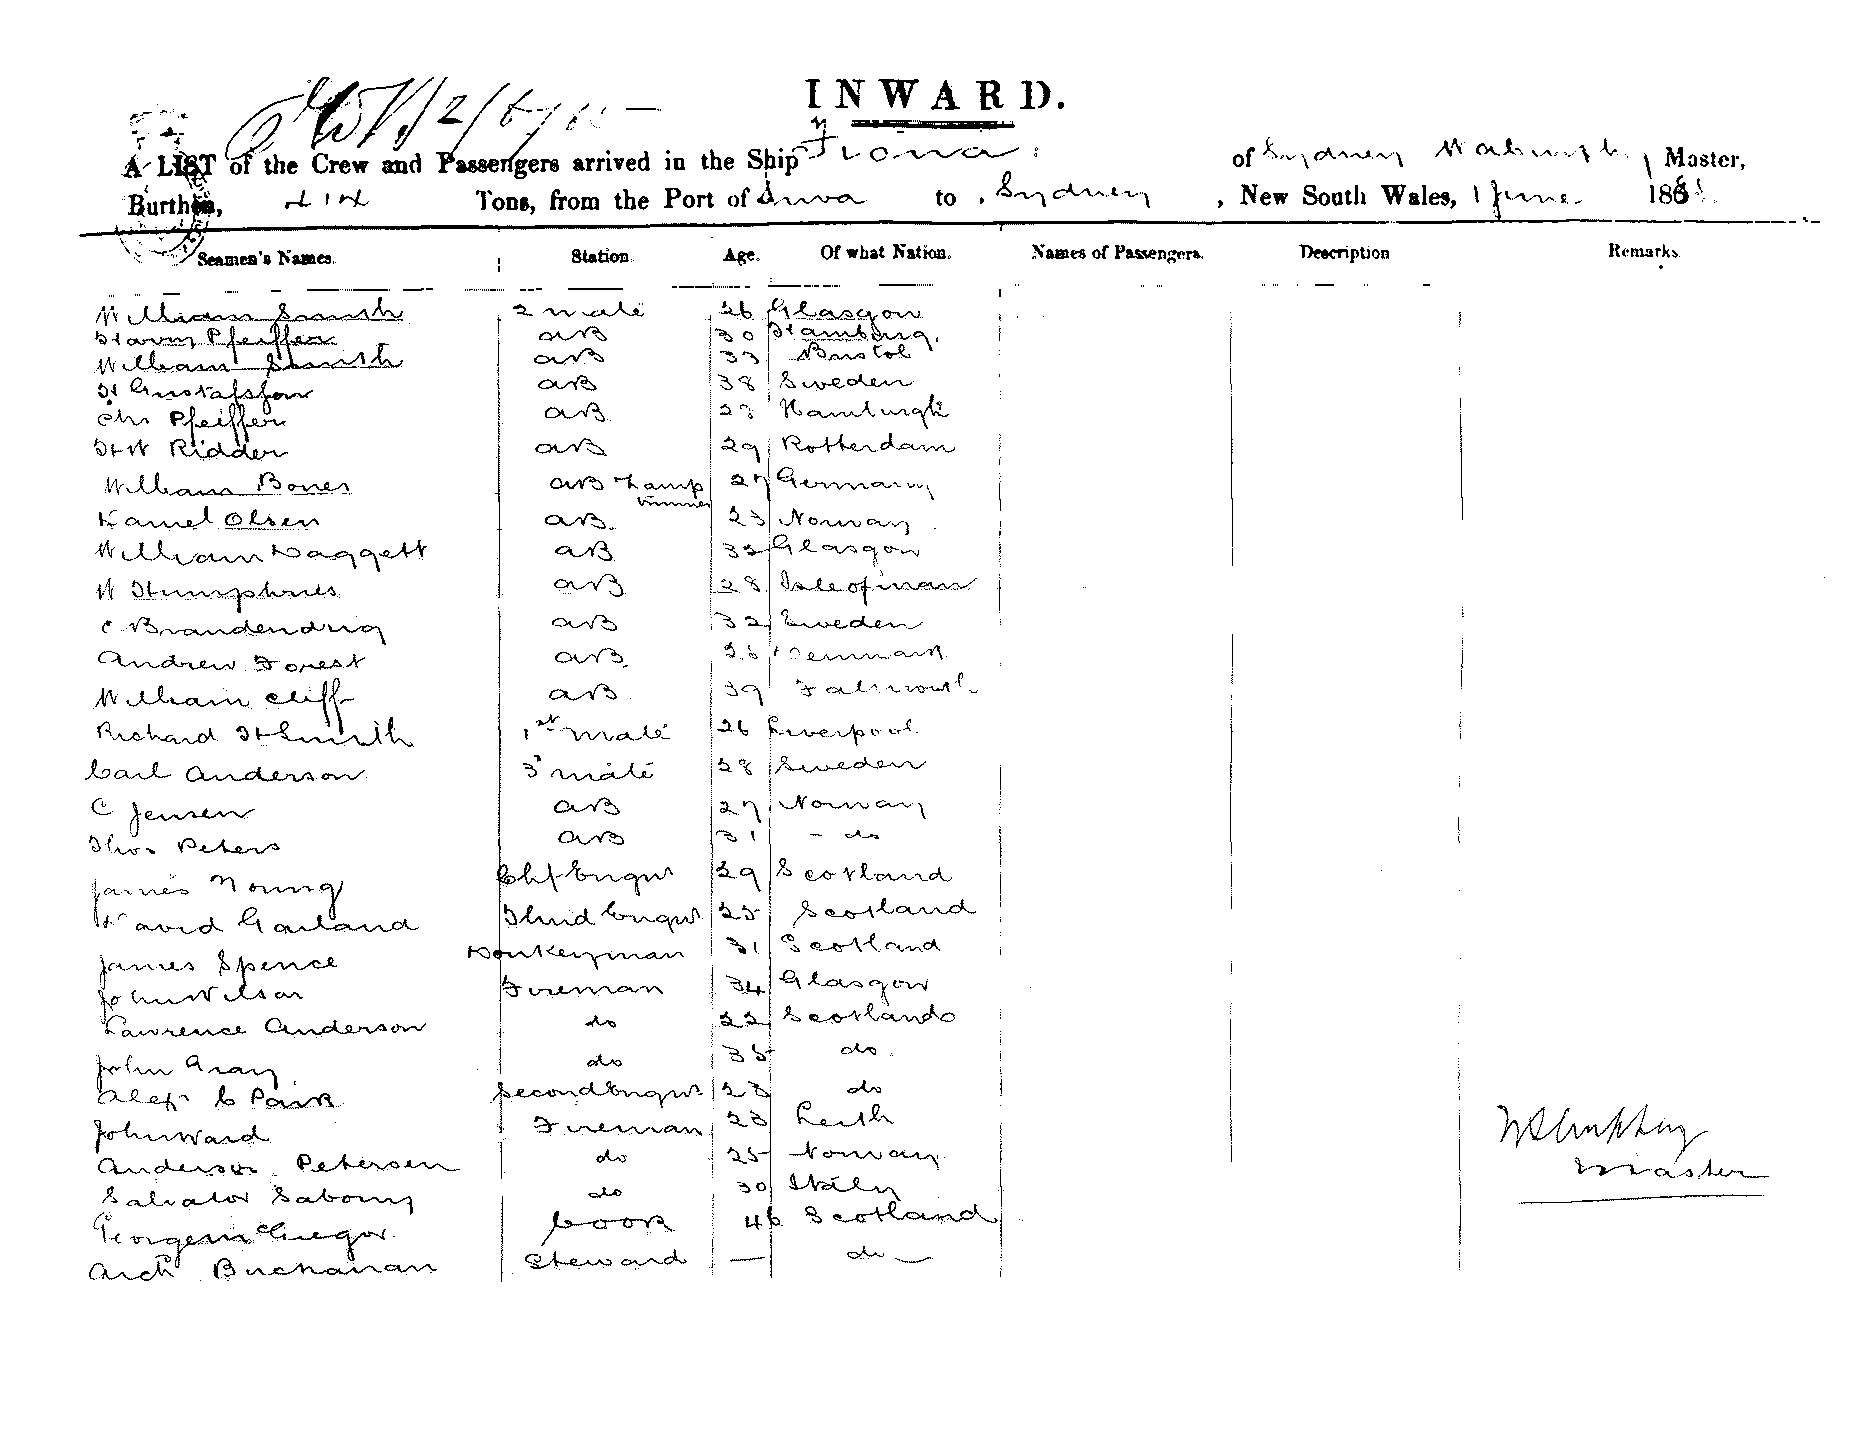 INWARD.
A LIST of the Crew and Passengers arrived in the Ship Fiona of Sydney Master,
Burthen, 414 Tons, from the Port of Suva to Sydney, New South Wales, 1 June 188
Seamen's Names. Station. Age. Of what Nation. Names of Passengers. Description Remarks
William Smith 2 mate 26 Glasgow
Harry Pfeiffer AB 30 Hamburg.
William Smith AB 33 Bristol
H Gustafsson AB 38 Sweden
Chr Pfeiffer AB 28 Hamburgh
H W Ridder AB 29 Rotterdam
William Bones AB Lamp trimmer 27 Germany
Daniel Olsen AB 23 Norway
William Daggett AB 32 Glasgow
W Humphries AB 28 Isle of man
C AB 32 Sweden
Andrew Forest AB 26 Denmark
William Cliff AB 39 Falmouth
Richard H Smith 1st mate 26 Liverpool
Carl Anderson 3 mate 28 Sweden
C Jensen AB 27 Norway
Thos Peters AB 31 - do
James Young Chf Engnr 29 Scotland
David Garland Third Engnr 25 Scotland
James Spence Donkeyman 31 Scotland
John Wilson Fireman 34 Glasgow
Lawrence Anderson do 22 Scotland
John Gray do 35 do
Alexr C Park Second Engnr 28 do
John Ward Fireman 23 Leith
Anderson Petersen do 25 Norway
Salvator do 30 Italy
George McGregor Cook 46 Scotland
Arch Buchanan Steward — do —
Master